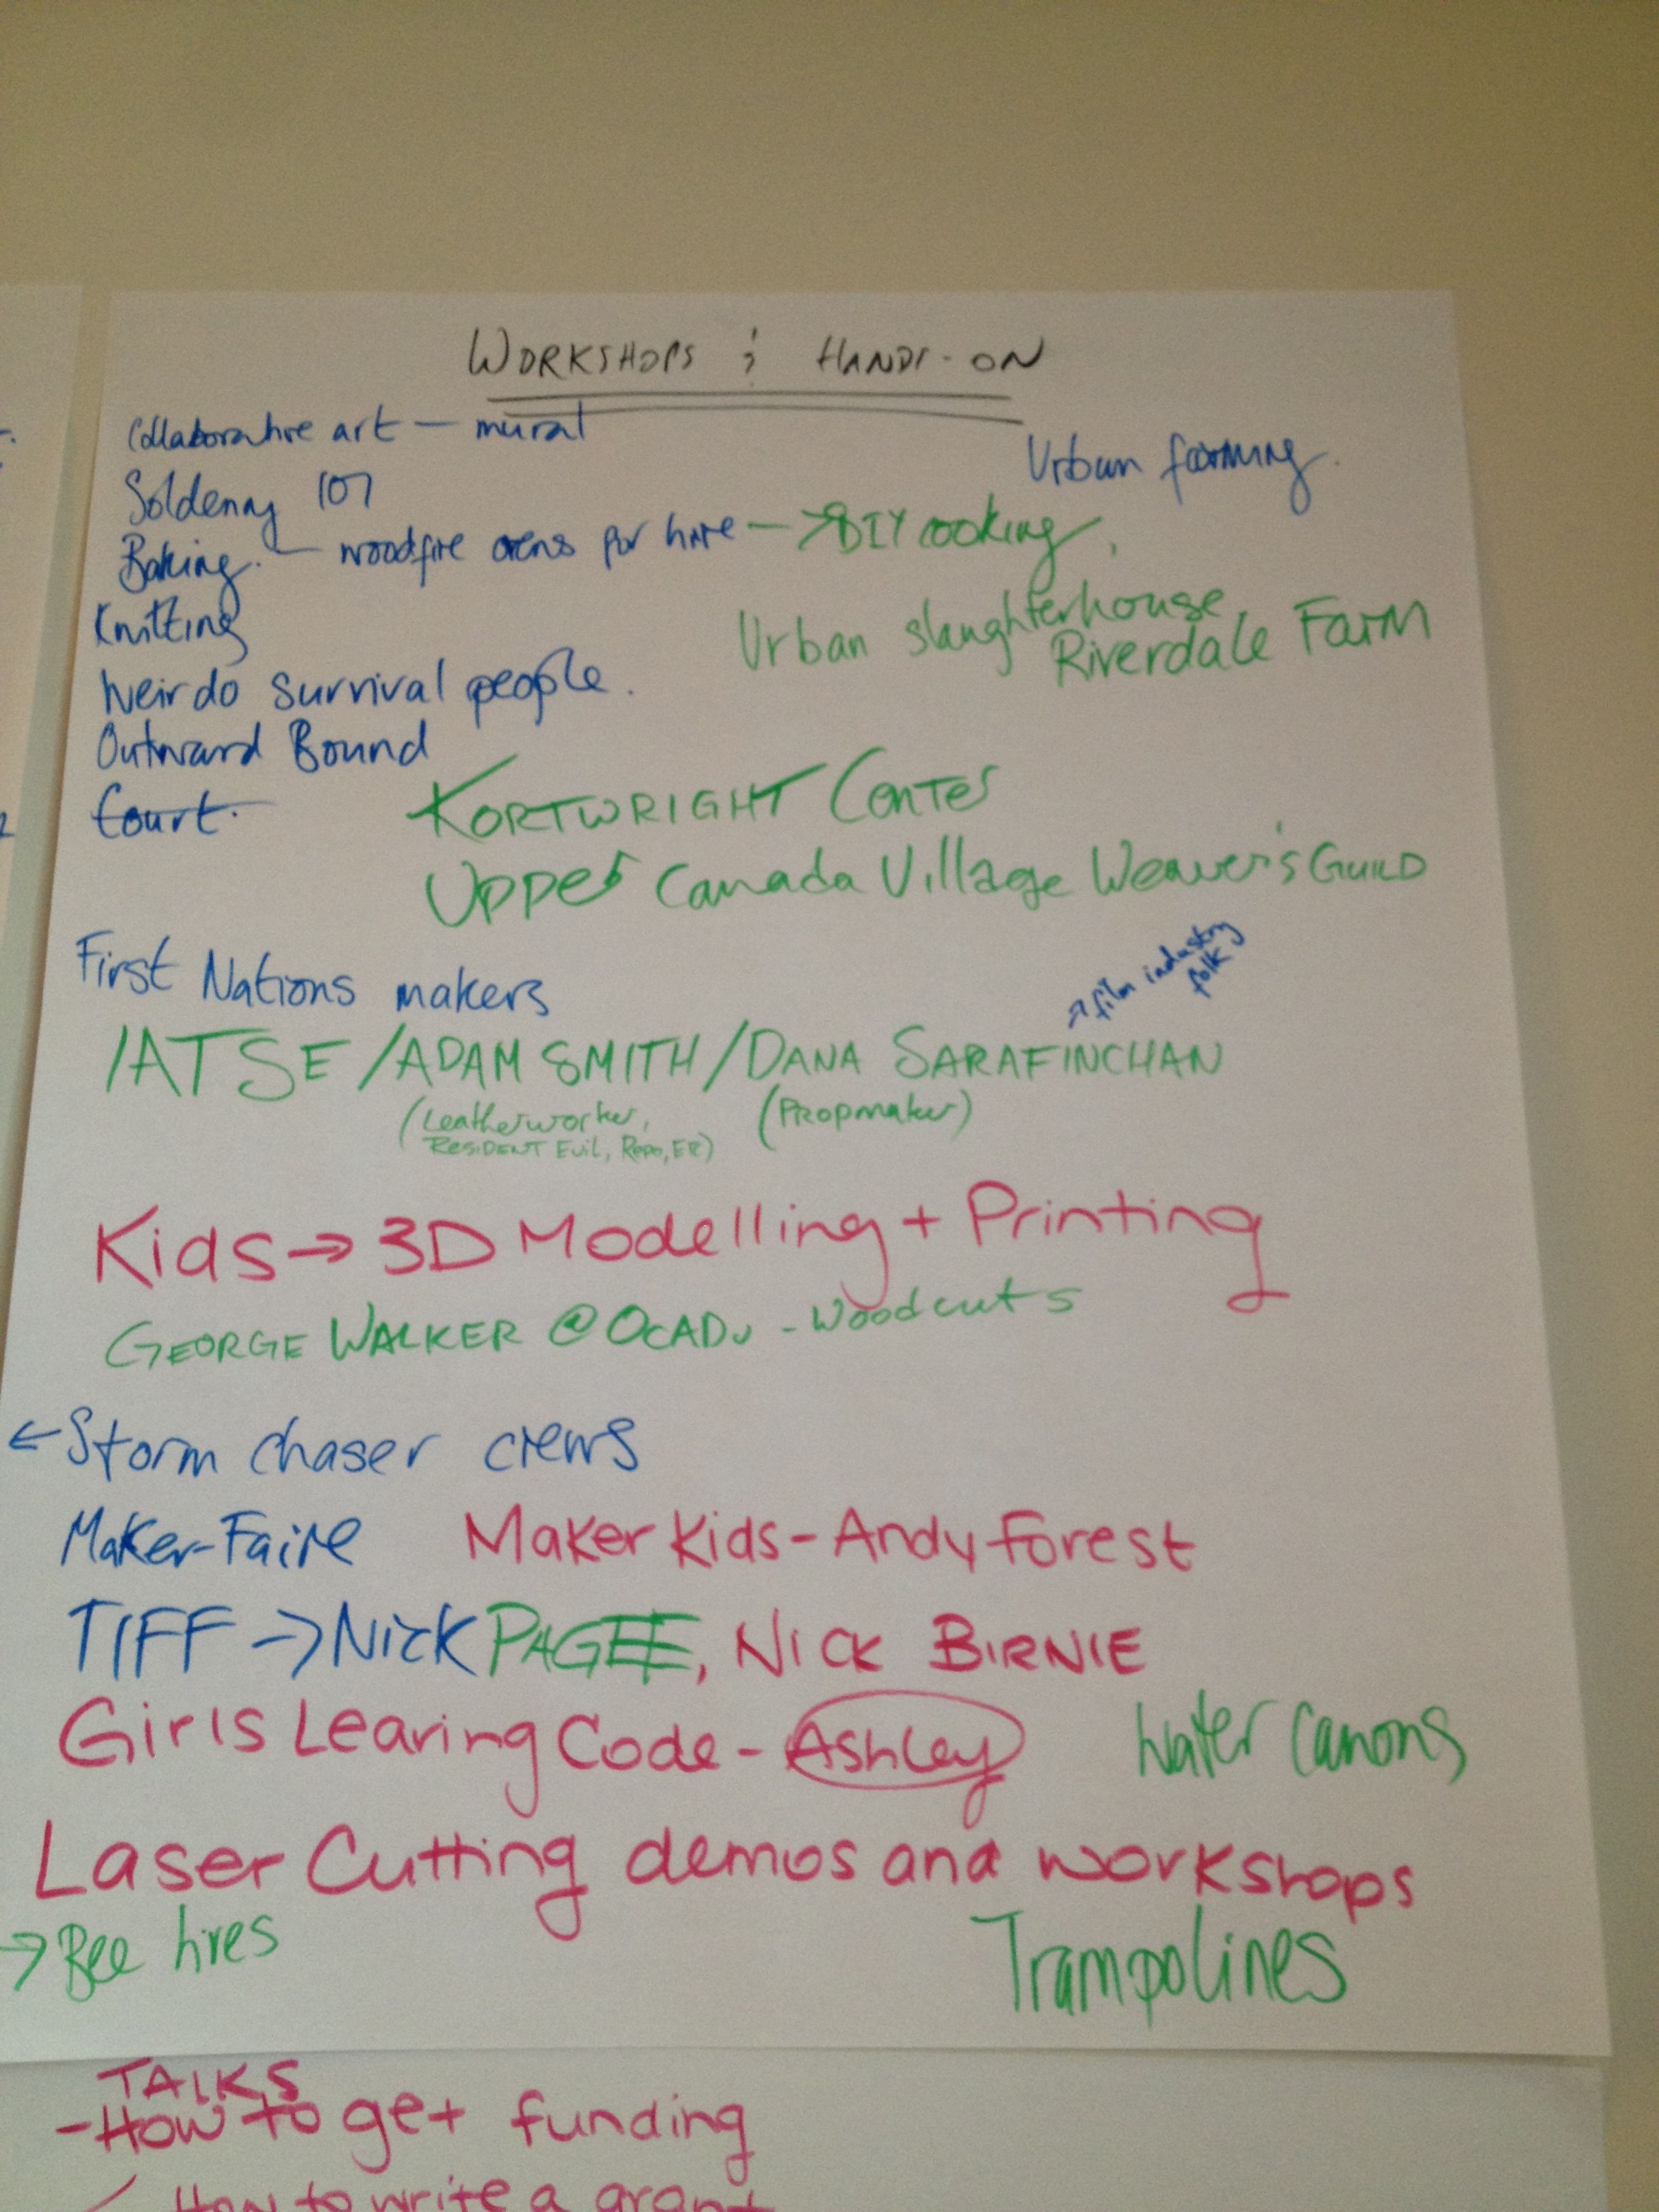 WORKSHOPS & HANDS-ON
Collaborative art — mural
Urban farming.
Soldering 101
Baking. — woodfire ovens for hire —> DIY cooking
Knitting
Urban slaughterhouse
Riverdale Farm
Weirdo survival people.
Outward Bound
Court.
KORTWRIGHT Center
Upper Canada Village Weaver's GUILD
First Nations makers
→ film industry folk
IATSE / ADAM SMITH / DANA SARAFINCHAN
(Leatherworker, (Propmaker)
RESIDENT Evil, Repo, ER)
Kids → 3D Modelling + Printing
GEORGE WALKER @ OCADU - Woodcuts
← Storm chaser crews
Maker-Faire Maker Kids - Andy Forest
TIFF -> Nick PAGEE, NICK BIRNIE
Girls Learing Code - Ashley
Water Canons
Laser Cutting demos and workshops
→ Bee hives
Trampolines
TALKS
- How to get funding
How to write a grant